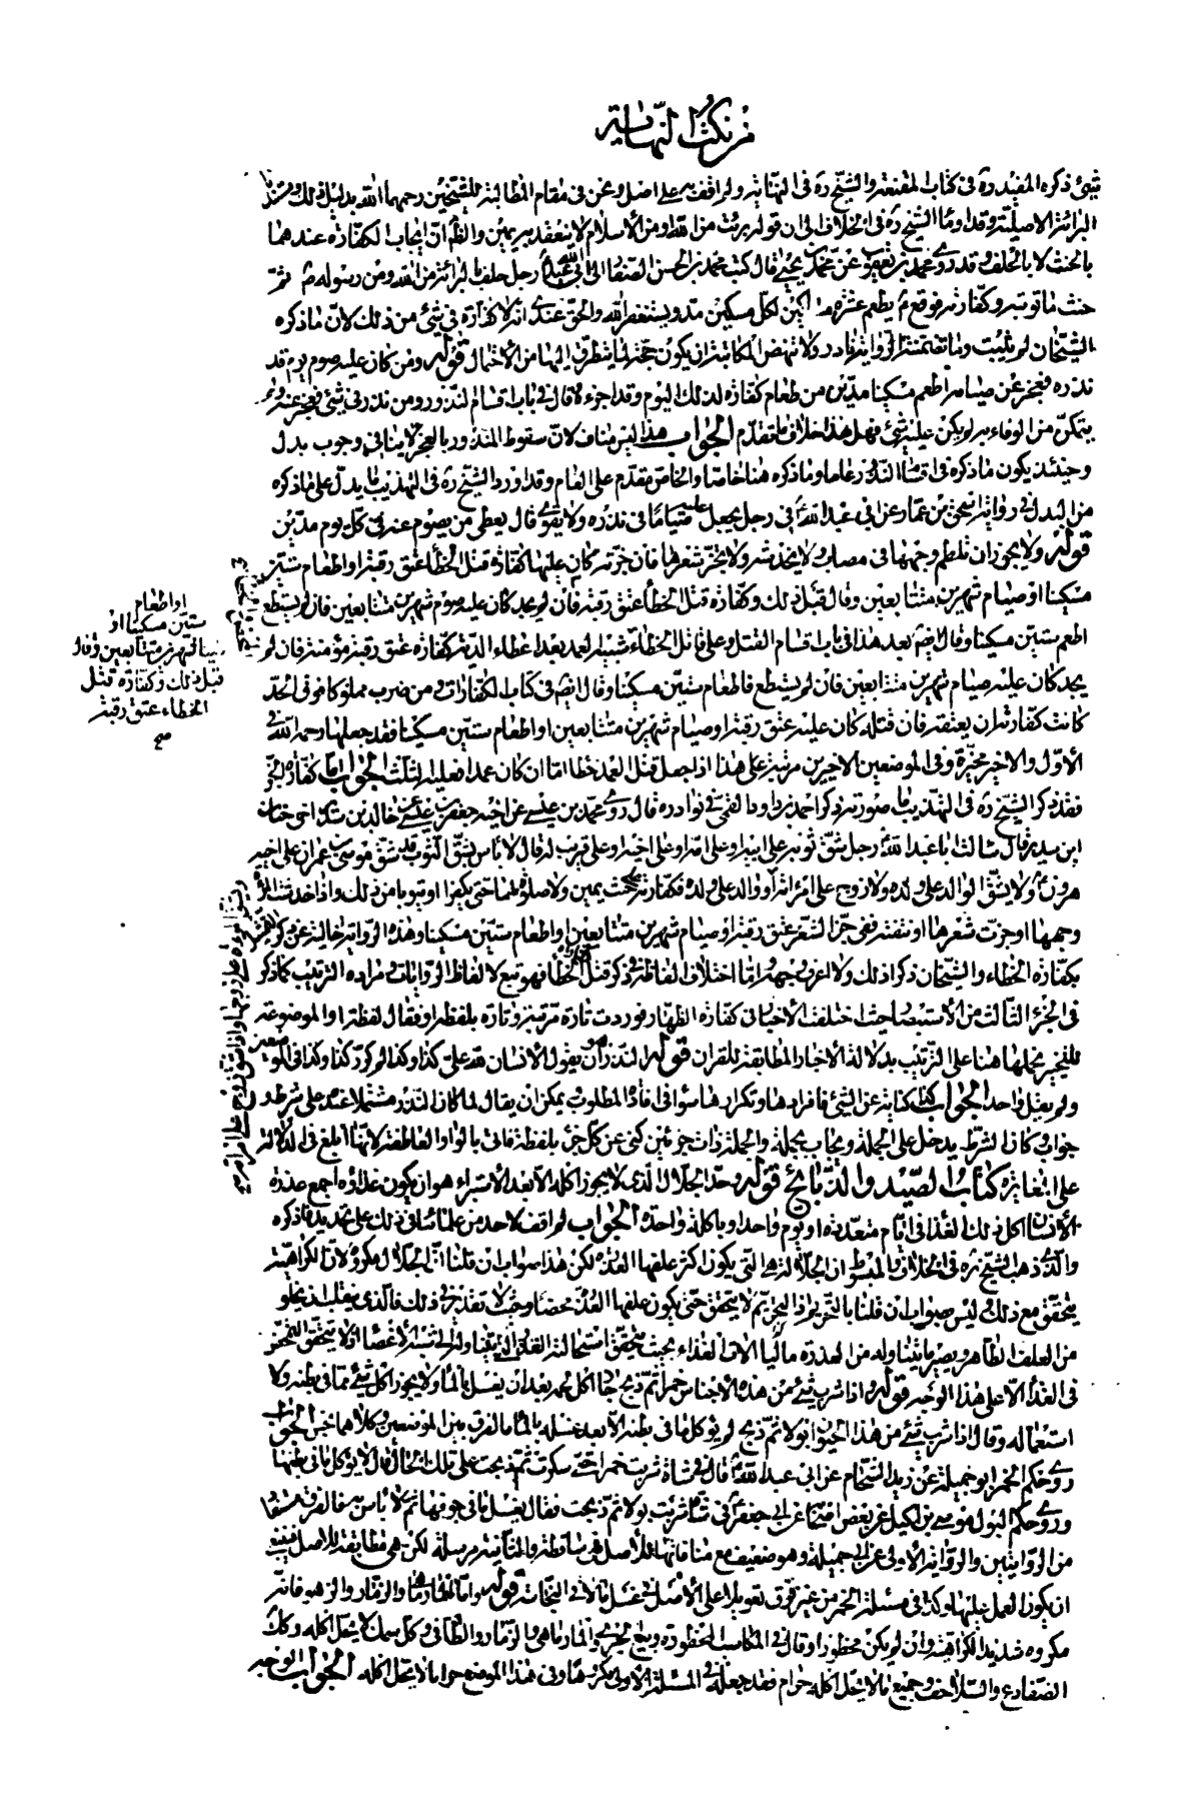 من نكت النهاية
شيئ ذكره المفيد ره في كتاب المقنعة والشيخ ره في النهاية ولم اقف به على اصل ونحن في مقام المطالبة للشيخين رحمهما الله بدليل ذلك
البرائة الاصلية وقد اومأ الشيخ ره في الخلاف الى ان قوله برئت من الله او من الاسلام لا ينعقد به يمين والظاهر ان ايجاب الكفارة عندهما
بالحنث لا بالحلف وقد روى محمد بن يعقوب عن محمد بن يحيى قال كتب محمد بن الحسن الصفار الى ابي محمد رجل حلف بالبرائة من الله ومن رسوله ص ثم
حنث ما توبته وكفارته فوقع ع يطعم عشرة مساكين لكل مسكين مد ويستغفر الله والحق عندي انه لا كفارة في شيئ من ذلك لان ما ذكره
الشيخان لم يثبت وما تضمنته الرواية نادر ولا تنهض المكاتبة ان يكون حجة لما يتطرق اليها من الاحتمال قوله ومن كان عليه صوم يوم قد
نذره فعجز عن صيامه اطعم مسكينا مدين من طعام كفارة لذلك اليوم وقد اجزءه وقال في باب اقسام النذور ومن نذر في شيئ فعجز عنه ولم
يتمكن من الوفاء به لم يكن عليه شيئ فهل هذا خلاف ما تقدم الجواب هذا ليس بمناف لان سقوط المنذور بالعجز لا ينافي وجوب بدل
وحينئذ يكون ما ذكره في اقسام النذر عاما وما ذكره هنا خاصا والخاص مقدم على العام وقد اورد الشيخ ره في التهذيب ما يدل على ما ذكره
من البدل في رواية اسحق بن عمار عن ابي عبد الله ع في رجل يجعل عليه صياما في نذره ولا يقوى قال يعطي من يصوم عنه في كل يوم مدين
قوله ولا يجوز ان تلطم وجهها في مصاب ولا يخدشه ولا يجز شعرها فان جزته كان عليها كفارة قتل الخطأ عتق رقبة او اطعام ستين
مسكينا او صيام شهرين متتابعين وقال قبل ذلك وكفارة قتل الخطأ عتق رقبة فان لم يجد كان عليه صوم شهرين متتابعين فان لم يستطع
اطعم ستين مسكينا وقال ايضا بعد هذا في باب اقسام القتل وعلى قاتل الخطاء شبيه العمد بعد اعطاء الدية كفارة عتق رقبة مؤمنة فان لم
يجد كان عليه صيام شهرين متتابعين فان لم يستطع فاطعام ستين مسكينا وقال ايضا في كتاب الكفارات ومن ضرب مملوكا فوق الحد
كانت كفارته ان يعتقه فان قتله كان عليه عتق رقبة او صيام شهرين متتابعين او اطعام ستين مسكينا فقد جعلها رحمه الله في
الاول والاخير مخيرة وفي الموضعين الاخيرين مرتبة على هذا اذا حصل قتل العمد خطا اما ان كان عمدا فعليه الثلث الجواب اما كفارة الجز
فقد ذكر الشيخ ره في التهذيب ما صورته ذكر احمد بن داود القمي في نوادره قال روى محمد بن عيسى عن اخيه جعفر بن عيسى عن خالد بن سدير اخي حنان
ابن سدير قال سالت ابا عبد الله ع رجل شق ثوبه على ابيه او على امه او على اخيه او على قريب له قال لا باس بشق الثوب قد شق موسى بن عمران على اخيه
هرون ع ولا يشق الوالد على ولده ولا زوج على امرأته او والد على ولده فكفارته حنث يمين ولا صلوة لهما حتى يكفرا او يتوبا من ذلك واذا خدشت المرأة
وجهها او جزت شعرها او نتفته ففي جز الشعر عتق رقبة او صيام شهرين متتابعين او اطعام ستين مسكينا وهذه الرواية خالية عن ذكر
بكفارة الخطاء والشيخان ذكرا ذلك ولا اعرف وجهه واما اختلاف الفاظه في ذكر قتل الخطأ فهو تبع لالفاظ الروايات ومراده الترتيب كما ذكر
في الجزء الثالث من الاستبصار حيث اختلفت الاخبار في كفارة الظهار فوردت تارة مرتبة وتارة بلفظة او فقال لفظة او الموضوعة
للتخيير نحملها هنا على الترتيب بدلالة الاخبار المطابقة للقران قوله النذر هو ان يقول الانسان لله علي كذا وكذا لم كرر كذا وكذا في
ولم يقل واحد الجواب كذا كناية عن الشيئ فافرادها وتكرارها سواء في افادة المطلوب يمكن ان يقال لما كان النذر مشتملا عنده على شرط و
جواب وكان الشرط يدخل على الجملة ويجاب بجملة والجملة ذات جزئين كنى عن كل جزء بلفظة فاتى بالواو العاطفة لانها ابلغ في الدلالة
على المغايرة كتاب الصيد والذبائح قوله وحد الجلال الذي لا يجوز اكله الا بعد الاستبراء هو ان يكون غذاؤه اجمع عذرة
الانسان اكل ذلك الغذاء في ايام متعددة او يوم واحد او باكلة واحدة الجواب لم اقف لاحد من علمائنا في ذلك على تحديد ما ذكره
والذي ذهب الشيخ ره في الخلاف والمبسوط ان الجلالة هي التي يكون اكثر علفها العذرة لكن هذا صواب ان قلنا ان الجلال مكروه لان الكراهية
يتحقق مع ذلك وليس صواب ان قلنا بالتحريم اذ التحريم لا يتحقق حتى يكون علفها العذرة محضا وحيث لا تقدير في ذلك فالذي
من العلف الطاهر ويصير ما يتناوله من العذرة
في الغذاء الا على هذا الوجه قوله واذا شرب شيئ من هذه الاجناس خمرا ثم ذبح جاز اكل لحمه بعد ان يغسل بالماء ولا يجوز اكل شيئ مما في بطنه ولا
استعماله وقال اذا شرب شيئ من هذا الحيوان بولا ثم ذبح لم يؤكل ما في بطنه الا بعد غسله بالماء ما الفرق بين الموضعين وكلاهما نجس الجواب
روى حكم الخمر ابو جميلة عن زيد الشحام عن ابي عبد الله ع قال في شاة شربت خمرا حتى سكرت ثم ذبحت على تلك الحال قال لا يؤكل ما في بطنها
وروى حكم البول موسى بن اكيل عن بعض اصحابنا عن ابي جعفر ع في شاة شربت بولا ثم ذبحت فقال يغسل ما في جوفها ثم لا باس به فالفرق مستفاد
من الروايتين والرواية الاولى عن ابي جميلة وهو ضعيف مع منافاتها للاصل فهي ساقطة والثانية مرسلة لكن هي مطابقة للاصل فينبغي
ان يكون العمل عليها وكذا في مسئلة الخمر من غير فرق تعويلا على الاصل في غسل ما لاقى النجاسة قوله واما المارماهي والزمار والزهو فانه
مكروه شديد الكراهية وان لم يكن محظورا وقال في المكاسب المحظورة وبيع الجري والمارماهي والزمار والطافي وكل سمك لا يحل اكله وكذا
الضفادع والسلاحف وجميع ما لا يحل اكله حرام فقد جعله في المسئلة الاولى مكروها وفي هذا الموضع حراما لا يحل اكله الجواب الوجه
او اطعام
ستين مسكينا او
صيام شهرين متتابعين وقال
قبل ذلك وكفارة قتل
الخطاء عتق رقبة
صح